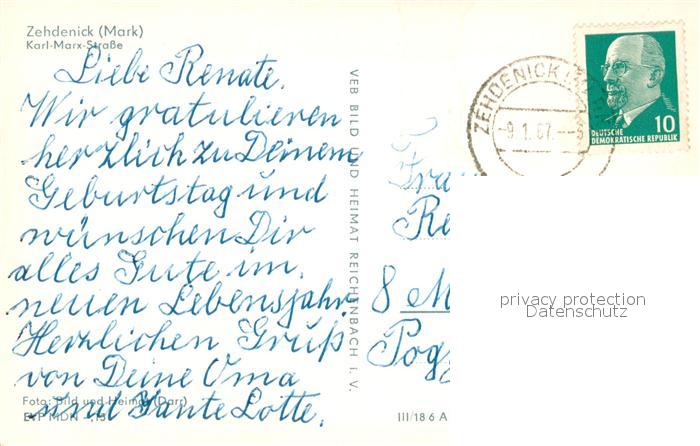 Zehdenick (Mark)
Karl-Marx-Straße
Liebe Renate.
Wir gratulieren
herzlich zu Deinem
Geburtstag und
wünschen Dir
alles Gute im
neuen Lebensjahr.
Herzlichen Gruß
von Deine Oma
und Tante Lotte.
Foto: Bild und Heimat (Darr)
EVP MDN
VEB BILD UND HEIMAT REICHENBACH I. V.
III/18 6 A
ZEHDENICK
-9.1.67.
10
DEUTSCHE
DEMOKRATISCHE REPUBLIK
Fra
Re
8 M
privacy protection
Datenschutz